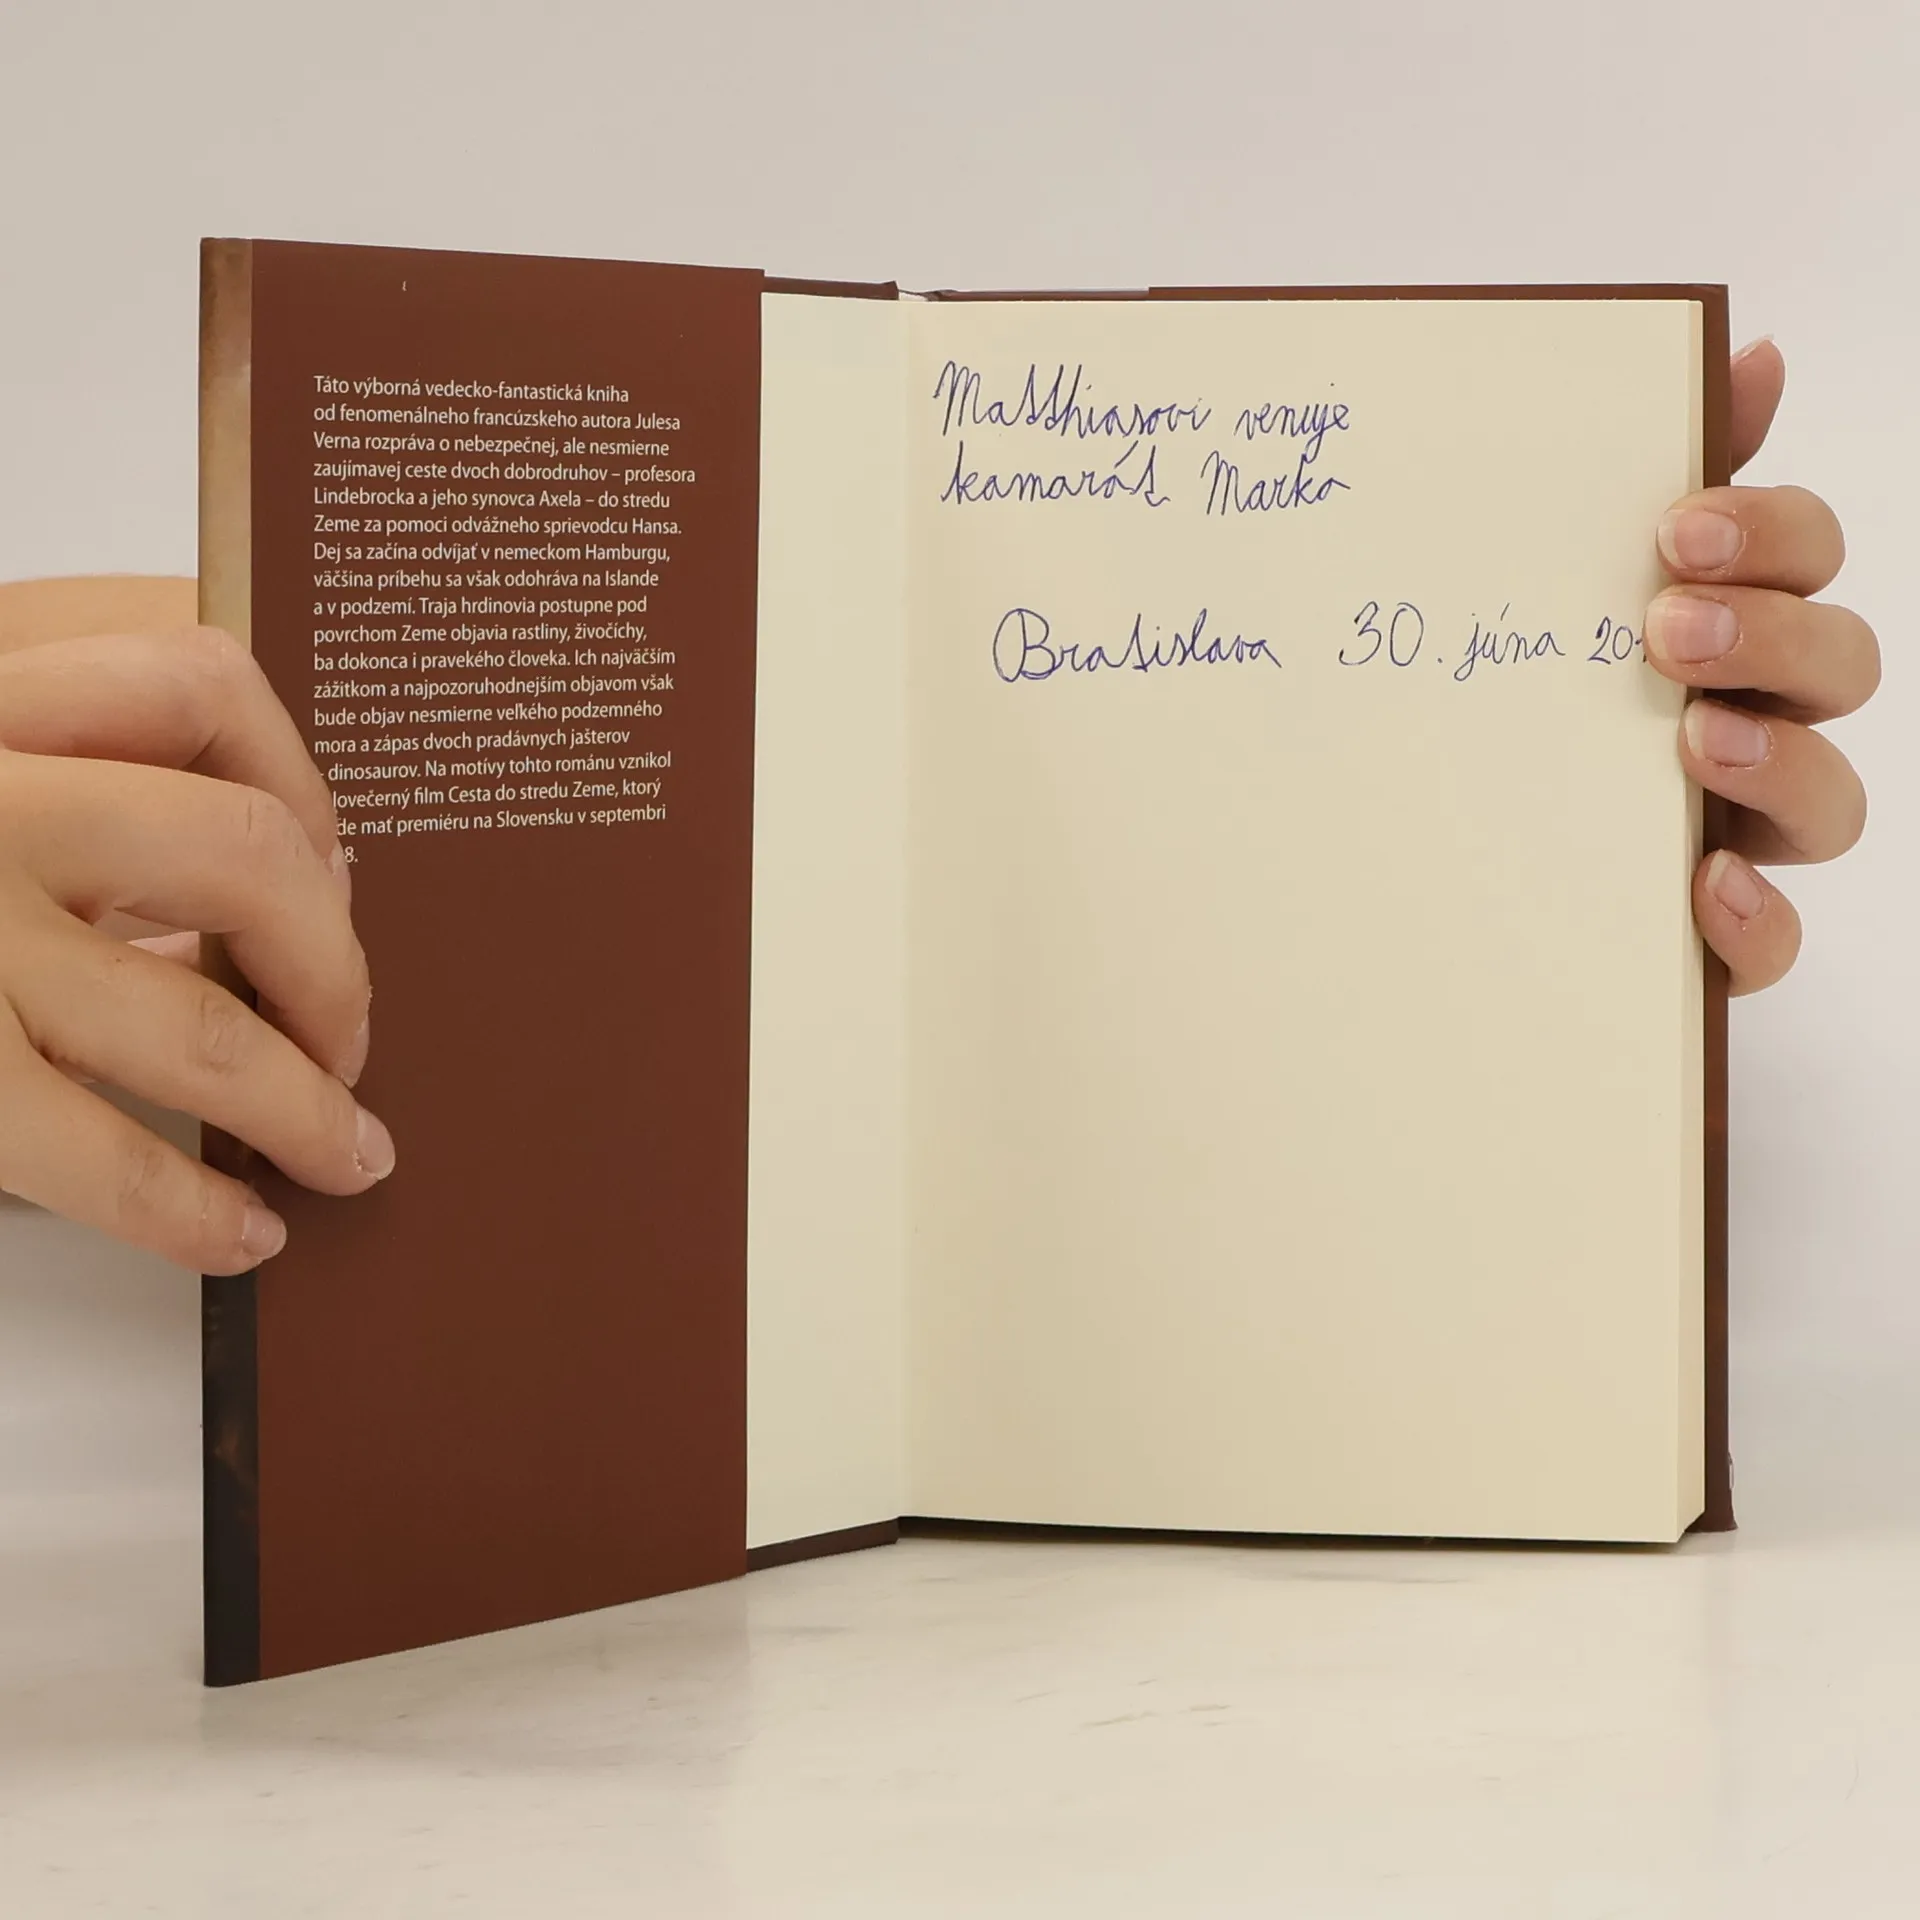 Táto výborná vedecko-fantastická kniha
od fenomenálneho francúzskeho autora Julesa
Verna rozpráva o nebezpečnej, ale nesmierne
zaujímavej ceste dvoch dobrodruhov – profesora
Lindebrocka a jeho synovca Axela – do stredu
Zeme za pomoci odvážneho sprievodcu Hansa.
Dej sa začína odvíjať v nemeckom Hamburgu,
väčšina príbehu sa však odohráva na Islande
a v podzemí. Traja hrdinovia postupne pod
povrchom Zeme objavia rastliny, živočíchy,
ba dokonca i pravekého človeka. Ich najväčším
zážitkom a najpozoruhodnejším objavom však
bude objav nesmierne veľkého podzemného
mora a zápas dvoch pradávnych jašterov
- dinosaurov. Na motívy tohto románu vznikol
lovečerný film Cesta do stredu Zeme, ktorý
de mať premiéru na Slovensku v septembri
8.
Matthiasovi venuje
kamarát Marko
Bratislava 30. júna 20